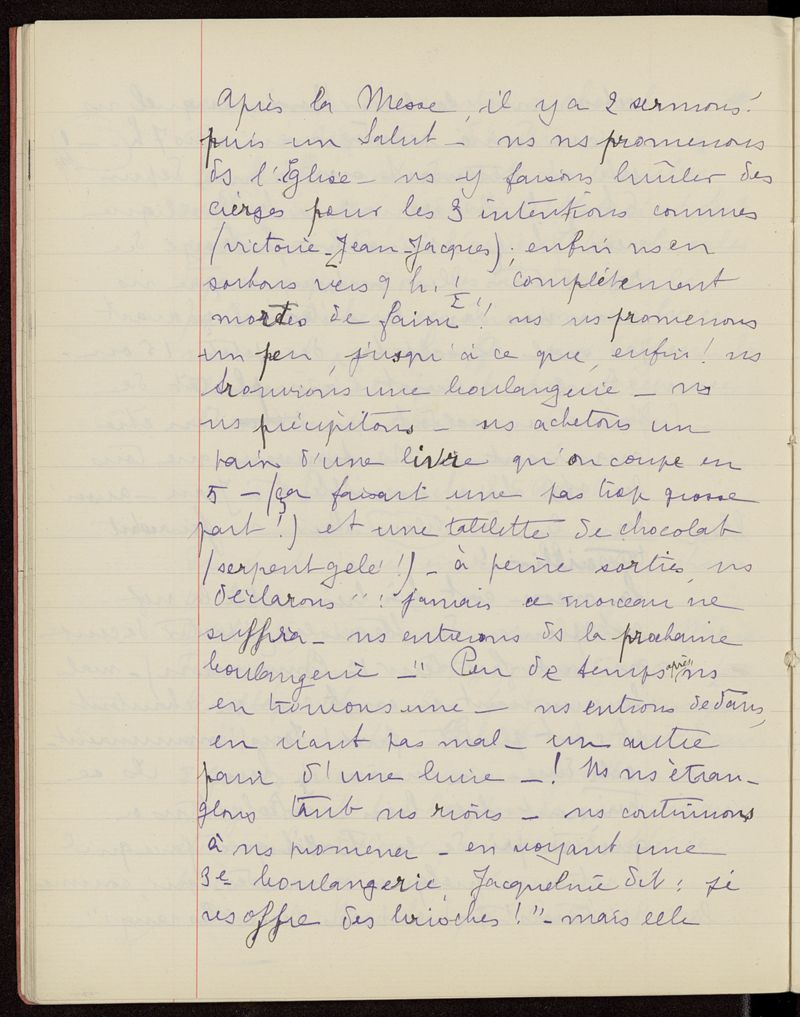 Après la Messe, il y a 2 sermons!
puis un Salut – ns ns promenons
ds l'Eglise – ns y faisons brûler des
cierges pour les 3 intentions connues
(victoire – Jean – Jacques); enfin ns en
sortons vers 9 h. 1/2 complètement
mortes de faim!! ns ns promenons
un peu, jusqu'à ce que, enfin! ns
trouvions une boulangerie – ns
ns précipitons – ns achetons un
pain d'une livre qu'on coupe en
5 – (ça faisait une pas trop grosse
part!) et une tablette de chocolat
(serpent gelé!) – à peine sorties, ns
déclarons ": jamais ce morceau ne
suffira – ns entrerons ds la prochaine
boulangerie –" Peu de temps après ns
en trouvons une – ns entrons dedans,
en riant pas mal – un autre
pain d'une livre –! Ns ns étran-
glons tant ns rions – ns continuons
à ns promener – en voyant une
3e boulangerie, Jacqueline dit: je
vs offre des brioches!" – mais elle